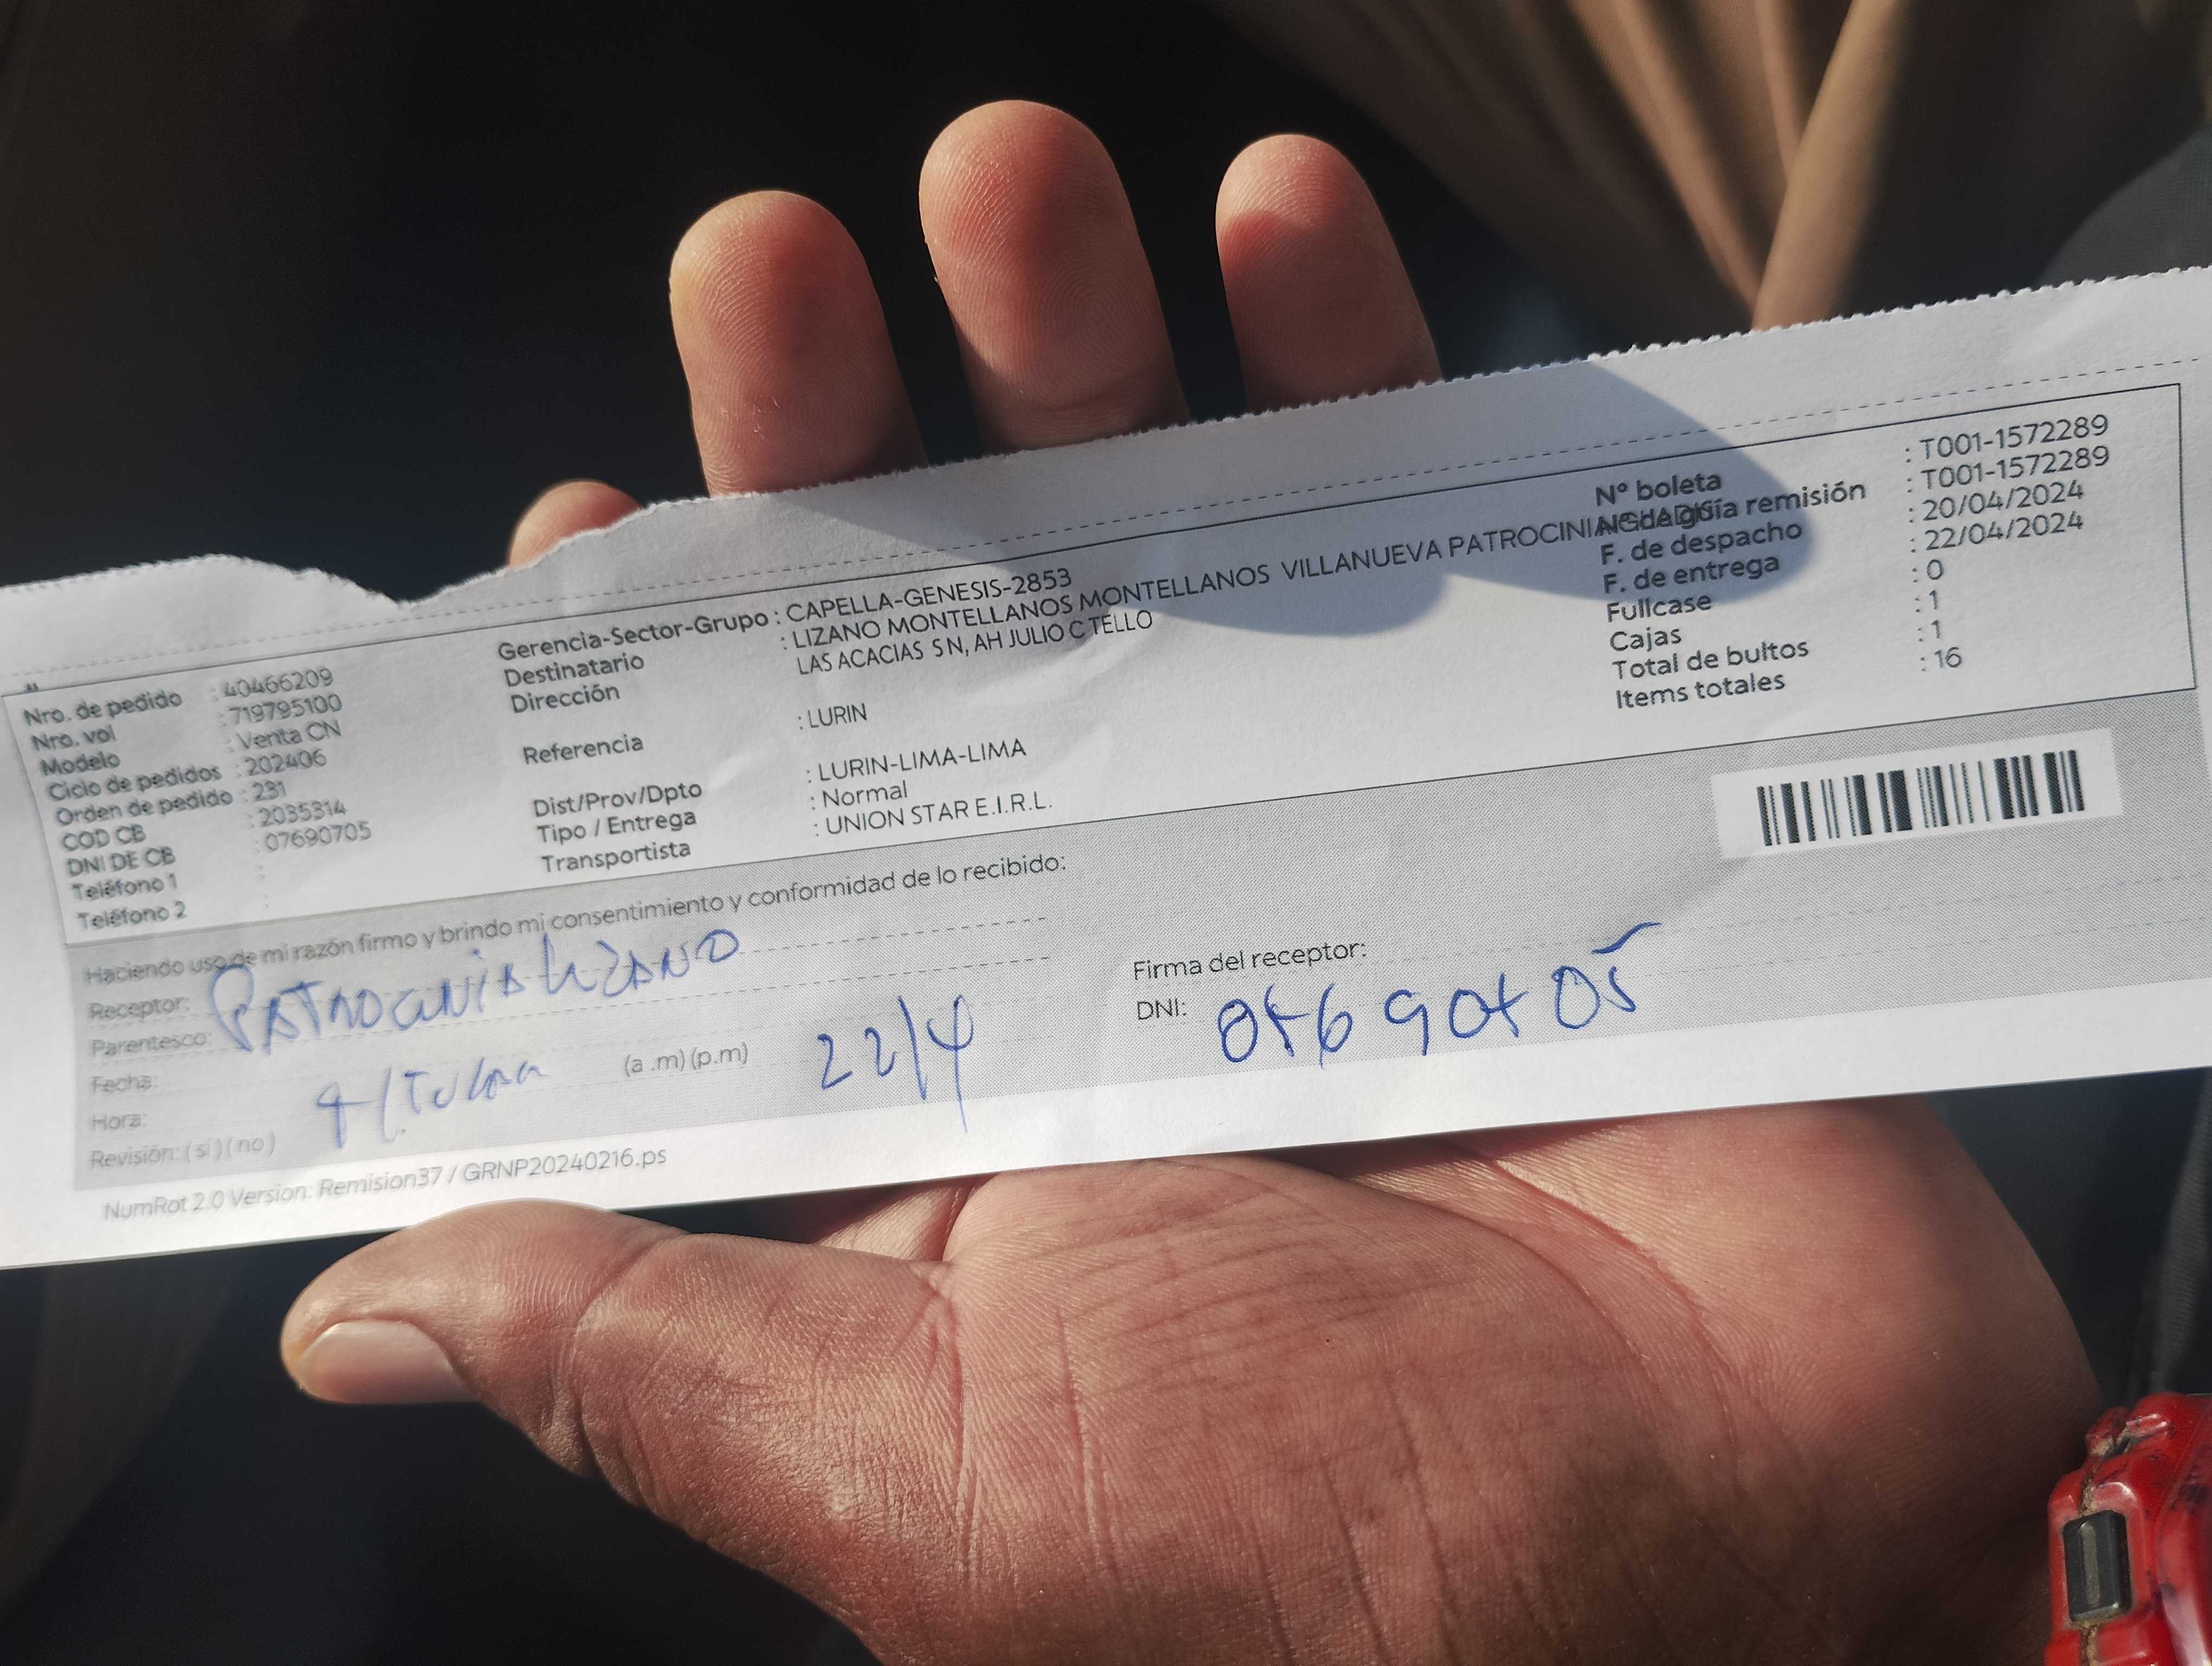 Nro. de pedido : 40466209
Nro. vol : 719795100
Modelo : Venta CN
Ciclo de pedidos : 202406
Orden de pedido : 231
COD CB : 2035314
DNI DE CB : 07690705
Teléfono 1 :
Teléfono 2 :
Gerencia-Sector-Grupo : CAPELLA-GENESIS-2853
Destinatario : LIZANO MONTELLANOS MONTELLANOS VILLANUEVA PATROCINIA
Dirección LAS ACACIAS S N, AH JULIO C TELLO
Referencia : LURIN
Dist/Prov/Dpto : LURIN-LIMA-LIMA
Tipo / Entrega : Normal
Transportista : UNION STAR E.I.R.L.
N° boleta : T001-1572289
N° de guía remisión : T001-1572289
F. de despacho : 20/04/2024
F. de entrega : 22/04/2024
Fullcase : 0
Cajas : 1
Total de bultos : 1
Items totales : 16
Haciendo uso de mi razón firmo y brindo mi consentimiento y conformidad de lo recibido:
Receptor: PATROCINIA LIZANO
Parentesco:
Fecha:
Hora: (a .m) (p.m) 22/4
Revisión: (si) (no)
Firma del receptor:
DNI: 07690705
NumRot 2.0 Version: Remision37 / GRNP20240216.ps